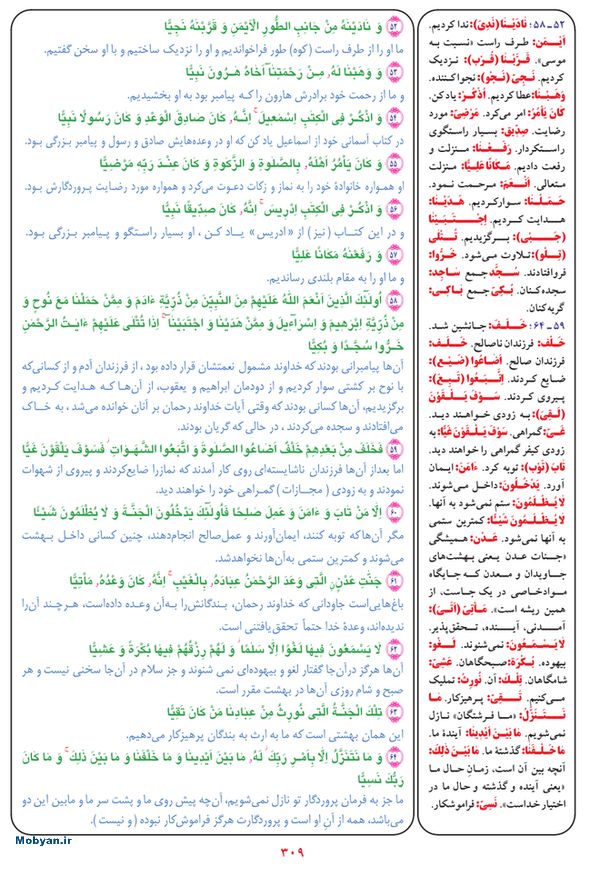 ۵۲ وَ نادَیْنٰهُ مِنْ جانِبِ الطُّورِ الْاَیْمَنِ وَ قَرَّبْنٰهُ نَجِیًّا
ما او را از طرف راست (کوه) طور فراخواندیم و او را نزدیک ساختیم و با او سخن گفتیم.
۵۳ وَ وَهَبْنا لَهُ مِنْ رَحْمَتِنا اَخاهُ هٰرُونَ نَبِیًّا
و ما از رحمت خود برادرش هارون را که پیامبر بود به او بخشیدیم.
۵۴ وَ اذْکُرْ فِی الْکِتٰبِ اِسْمٰعیلَ اِنَّهُ کانَ صادِقَ الْوَعْدِ وَ کانَ رَسُولًا نَبِیًّا
در کتاب آسمانی خود از اسماعیل یاد کن که او در وعده‌هایش صادق و رسول و پیامبر بزرگی بود.
۵۵ وَ کانَ یَأْمُرُ اَهْلَهُ بِالصَّلٰوةِ وَ الزَّکٰوةِ وَ کانَ عِنْدَ رَبِّهِ مَرْضِیًّا
او همواره خانوادهٔ خود را به نماز و زکات دعوت می‌کرد و همواره مورد رضایت پروردگارش بود.
۵۶ وَ اذْکُرْ فِی الْکِتٰبِ اِدْریسَ اِنَّهُ کانَ صِدّیقًا نَبِیًّا
و در این کتاب (نیز) از «ادریس» یاد کن، او بسیار راستگو و پیامبر بزرگی بود.
۵۷ وَ رَفَعْنٰهُ مَکانًا عَلِیًّا
و ما او را به مقام بلندی رساندیم.
۵۸ اُولٰئِکَ الَّذینَ اَنْعَمَ اللّٰهُ عَلَیْهِمْ مِنَ النَّبِیّنَ مِنْ ذُرِّیَّةِ ءادَمَ وَ مِمَّنْ حَمَلْنا مَعَ نُوحٍ وَ
مِنْ ذُرِّیَّةِ اِبْرٰهیمَ وَ اِسْرٰءیلَ وَ مِمَّنْ هَدَیْنا وَ اجْتَبَیْنا اِذا تُتْلٰی عَلَیْهِمْ ءایٰتُ الرَّحْمٰنِ
خَرُّوا سُجَّدًا وَ بُکِیًّا
آن‌ها پیامبرانی بودند که خداوند مشمول نعمتشان قرار داده بود، از فرزندان آدم و از کسانی‌که
با نوح بر کشتی سوار کردیم و از دودمان ابراهیم و یعقوب، از آن‌ها که هدایت کردیم و
برگزیدیم، آن‌ها کسانی بودند که وقتی آیات خداوند رحمان بر آنان خوانده می‌شد، به خاک
می‌افتادند و سجده می‌کردند، در حالی که گریان بودند.
۵۹ فَخَلَفَ مِنْ بَعْدِهِمْ خَلْفٌ اَضاعُوا الصَّلٰوةَ وَ اتَّبَعُوا الشَّهَوٰاتِ فَسَوْفَ یَلْقَوْنَ غَیًّا
اما بعداز آن‌ها فرزندان ناشایسته‌ای روی کار آمدند که نمازرا ضایع‌کردند و پیروی از شهوات
نمودند و به زودی (مجازات) گمراهی خود را خواهند دید.
۶۰ اِلّا مَنْ تابَ وَ ءامَنَ وَ عَمِلَ صٰلِحًا فَاُولٰئِکَ یَدْخُلُونَ الْجَنَّةَ وَ لا یُظْلَمُونَ شَیْئًا
مگر آن‌هاکه توبه کنند، ایمان‌آورند و عمل‌صالح انجام‌دهند، چنین کسانی داخل بهشت
می‌شوند و کمترین ستمی به‌آن‌ها نخواهدشد.
۶۱ جَنّٰتِ عَدْنٍ الَّتی وَعَدَ الرَّحْمٰنُ عِبادَهُ بِالْغَیْبِ اِنَّهُ کانَ وَعْدُهُ مَأْتِیًّا
باغ‌هایی‌است جاودانی که خداوند رحمان، بندگانش رابه‌آن وعده داده‌است، هرچند آن‌را
ندیده‌اند، وعدهٔ خدا حتماً تحقق‌یافتنی است.
۶۲ لا یَسْمَعُونَ فیها لَغْوًا اِلّا سَلٰمًا وَ لَهُمْ رِزْقُهُمْ فیها بُکْرَةً وَ عَشِیًّا
آن‌ها هرگز درآن‌جا گفتار لغو و بیهوده‌ای نمی شنوند و جز سلام در آن‌جا سخنی نیست و هر
صبح و شام روزی آن‌ها در بهشت مقرر است.
۶۳ تِلْکَ الْجَنَّةُ الَّتی نُورِثُ مِنْ عِبادِنا مَنْ کانَ تَقِیًّا
این همان بهشتی است که ما به ارث به بندگان پرهیزکار می‌دهیم.
۶۴ وَ ما نَتَنَزَّلُ اِلّا بِاَمْرِ رَبِّکَ لَهُ ما بَیْنَ اَیْدینا وَ ما خَلْفَنا وَ ما بَیْنَ ذٰلِکَ وَ ما کانَ
رَبُّکَ نَسِیًّا
ما جز به فرمان پروردگار تو نازل نمی‌شویم، آن‌چه پیش روی ما و پشت سر ما و مابین این دو
می‌باشد، همه از آنِ او است و پروردگارت هرگز فراموش‌کار نبوده (و نیست).
۵۲ ـ ۵۸: نادَیْنا (نَدِیَ): ندا کردیم.
اَیْمَن: طرف راست «نسبت به
موسی». قَرَّبْنا (قُرْب): نزدیک
کردیم. نَجِیّ (نَجْو): نجواکننده.
وَهَبْنا: عطا کردیم. اُذْکُرْ: یادکن.
کانَ یَأْمُرُ: امر می‌کرد. مَرْضِیّ: مورد
رضایت. صِدّیق: بسیار راستگوی
راستکردار. رَفَعْنا: منزلت و
رفعت دادیم. مَکانًا عَلِیًّا: منزلت
متعالی. اَنْعَمَ: مرحمت نمود.
حَمَلْنا: سوارکردیم. هَدَیْنا:
هدایت کردیم. اِجْتَبَیْنا
(جَبْی): برگزیدیم. تُتْلٰی
(تِلْو): تلاوت می‌شود. خَرُّوا:
فروافتادند. سُجَّد جمع ساجِد:
سجده‌کنان. بُکِیّ جمع باکی:
گریه‌کنان.
۵۹ ـ ۶۴: خَلَفَ: جانشین شد.
خَلْف: فرزندان ناصالح. خَلَف:
فرزندان صالح. اَضاعُوا (ضَیْع):
ضایع کردند. اِتَّبَعُوا (تَبِعَ):
پیروی کردند. سَوْفَ یَلْقَوْنَ
(لَقِیَ): به زودی خواهند دید.
غَیّ: گمراهی. سَوْفَ یَلْقَوْنَ غَیًّا: به
زودی کیفر گمراهی را خواهند دید.
تابَ (تَوْب): توبه کرد. ءامَنَ: ایمان
آورد. یَدْخُلُونَ: داخل می‌شوند.
لا یُظْلَمُونَ: ستم نمی‌شود به آنها.
لا یُظْلَمُونَ شَیْئًا: کمترین ستمی
به آنها نمی‌شود. عَدْن: همیشگی
«جنات عدن یعنی بهشت‌های
جاویدان و معدن که جایگاه
موادخاصی در یک جاست، از
همین ریشه است». مَأْتِیّ (اَتْی):
آمدنی، آینده، تحقق‌پذیر.
لا یَسْمَعُونَ: نمی‌شنوند. لَغْو:
بیهوده. بُکْرَة: صبحگاهان. عَشِیّ:
شامگاهان. تِلْکَ: آن. نُورِثُ: تملیک
می‌کنیم. تَقِیّ: پرهیزکار. ما
نَتَنَزَّلُ: «ما فرشتگان» نازل
نمی‌شویم. ما بَیْنَ اَیْدینا: آیندهٔ ما.
ما خَلْفَنا: گذشتهٔ ما. ما بَیْنَ ذٰلِکَ:
آنچه بین آن است، زمان حال ما
«یعنی آینده و گذشته و حال ما در
اختیار خداست». نَسِیّ: فراموشکار.
Mobyan.ir
۳۰۹